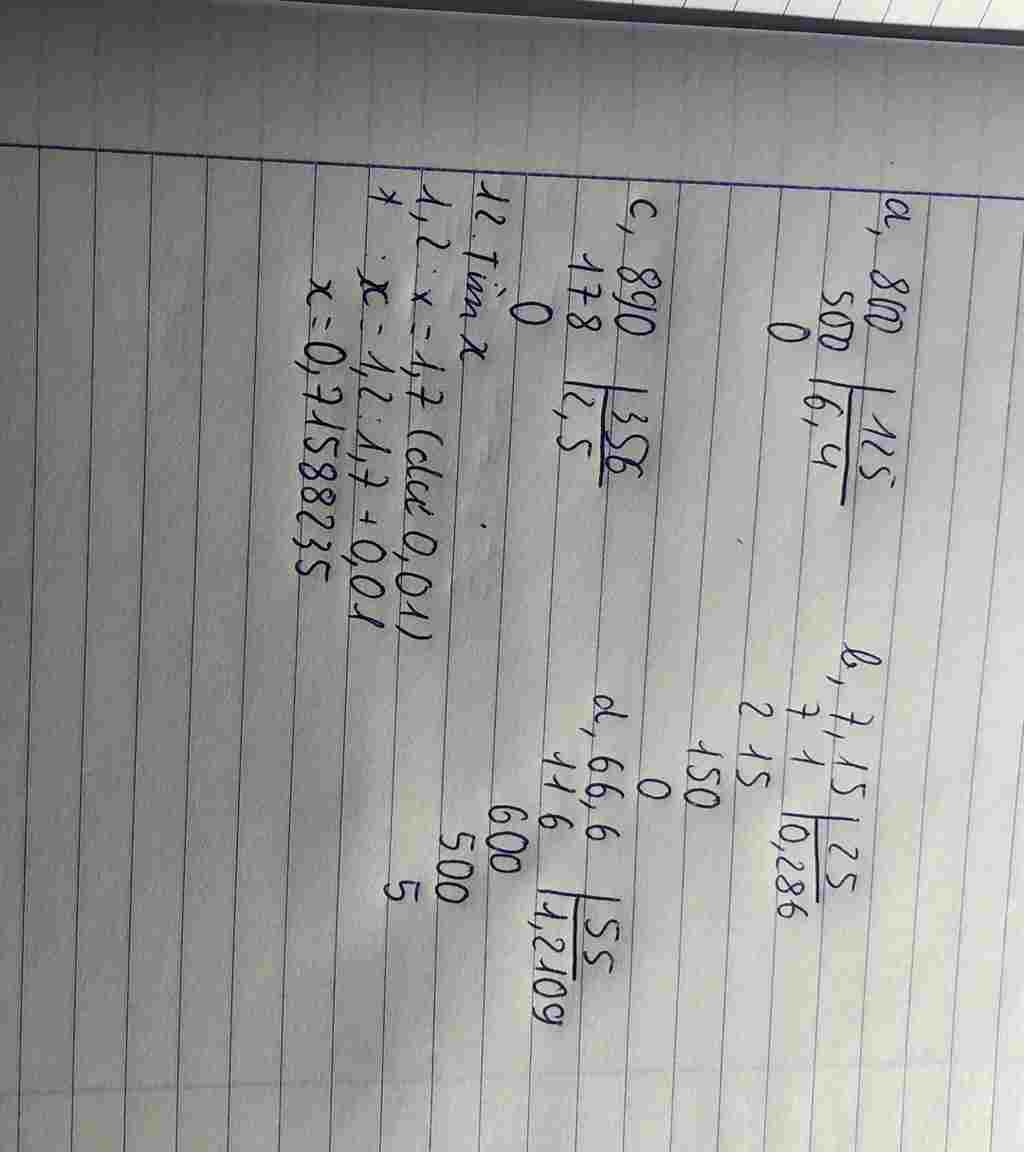 a, 800 125 b, 7,15 25
500 6,4 7 1 0,286
0 2 15
150
0
c, 890 356 d, 66,6 55
178 2,5 11 6 1,2109
0 600
12. Tìm x 500
1,2 : x = 1,7 (dư 0,01) 5
x : x = 1,2 : 1,7 + 0,01
x = 0,71588235